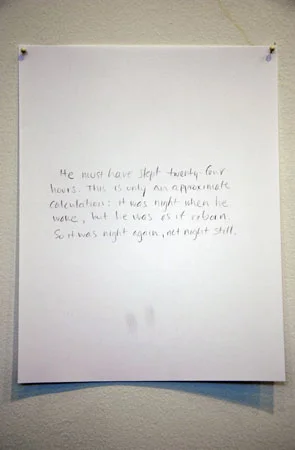 He must have slept twenty-four
hours. This is only an approximate
calculation: it was night when he
woke, but he was as if reborn.
So it was night again, not night still.